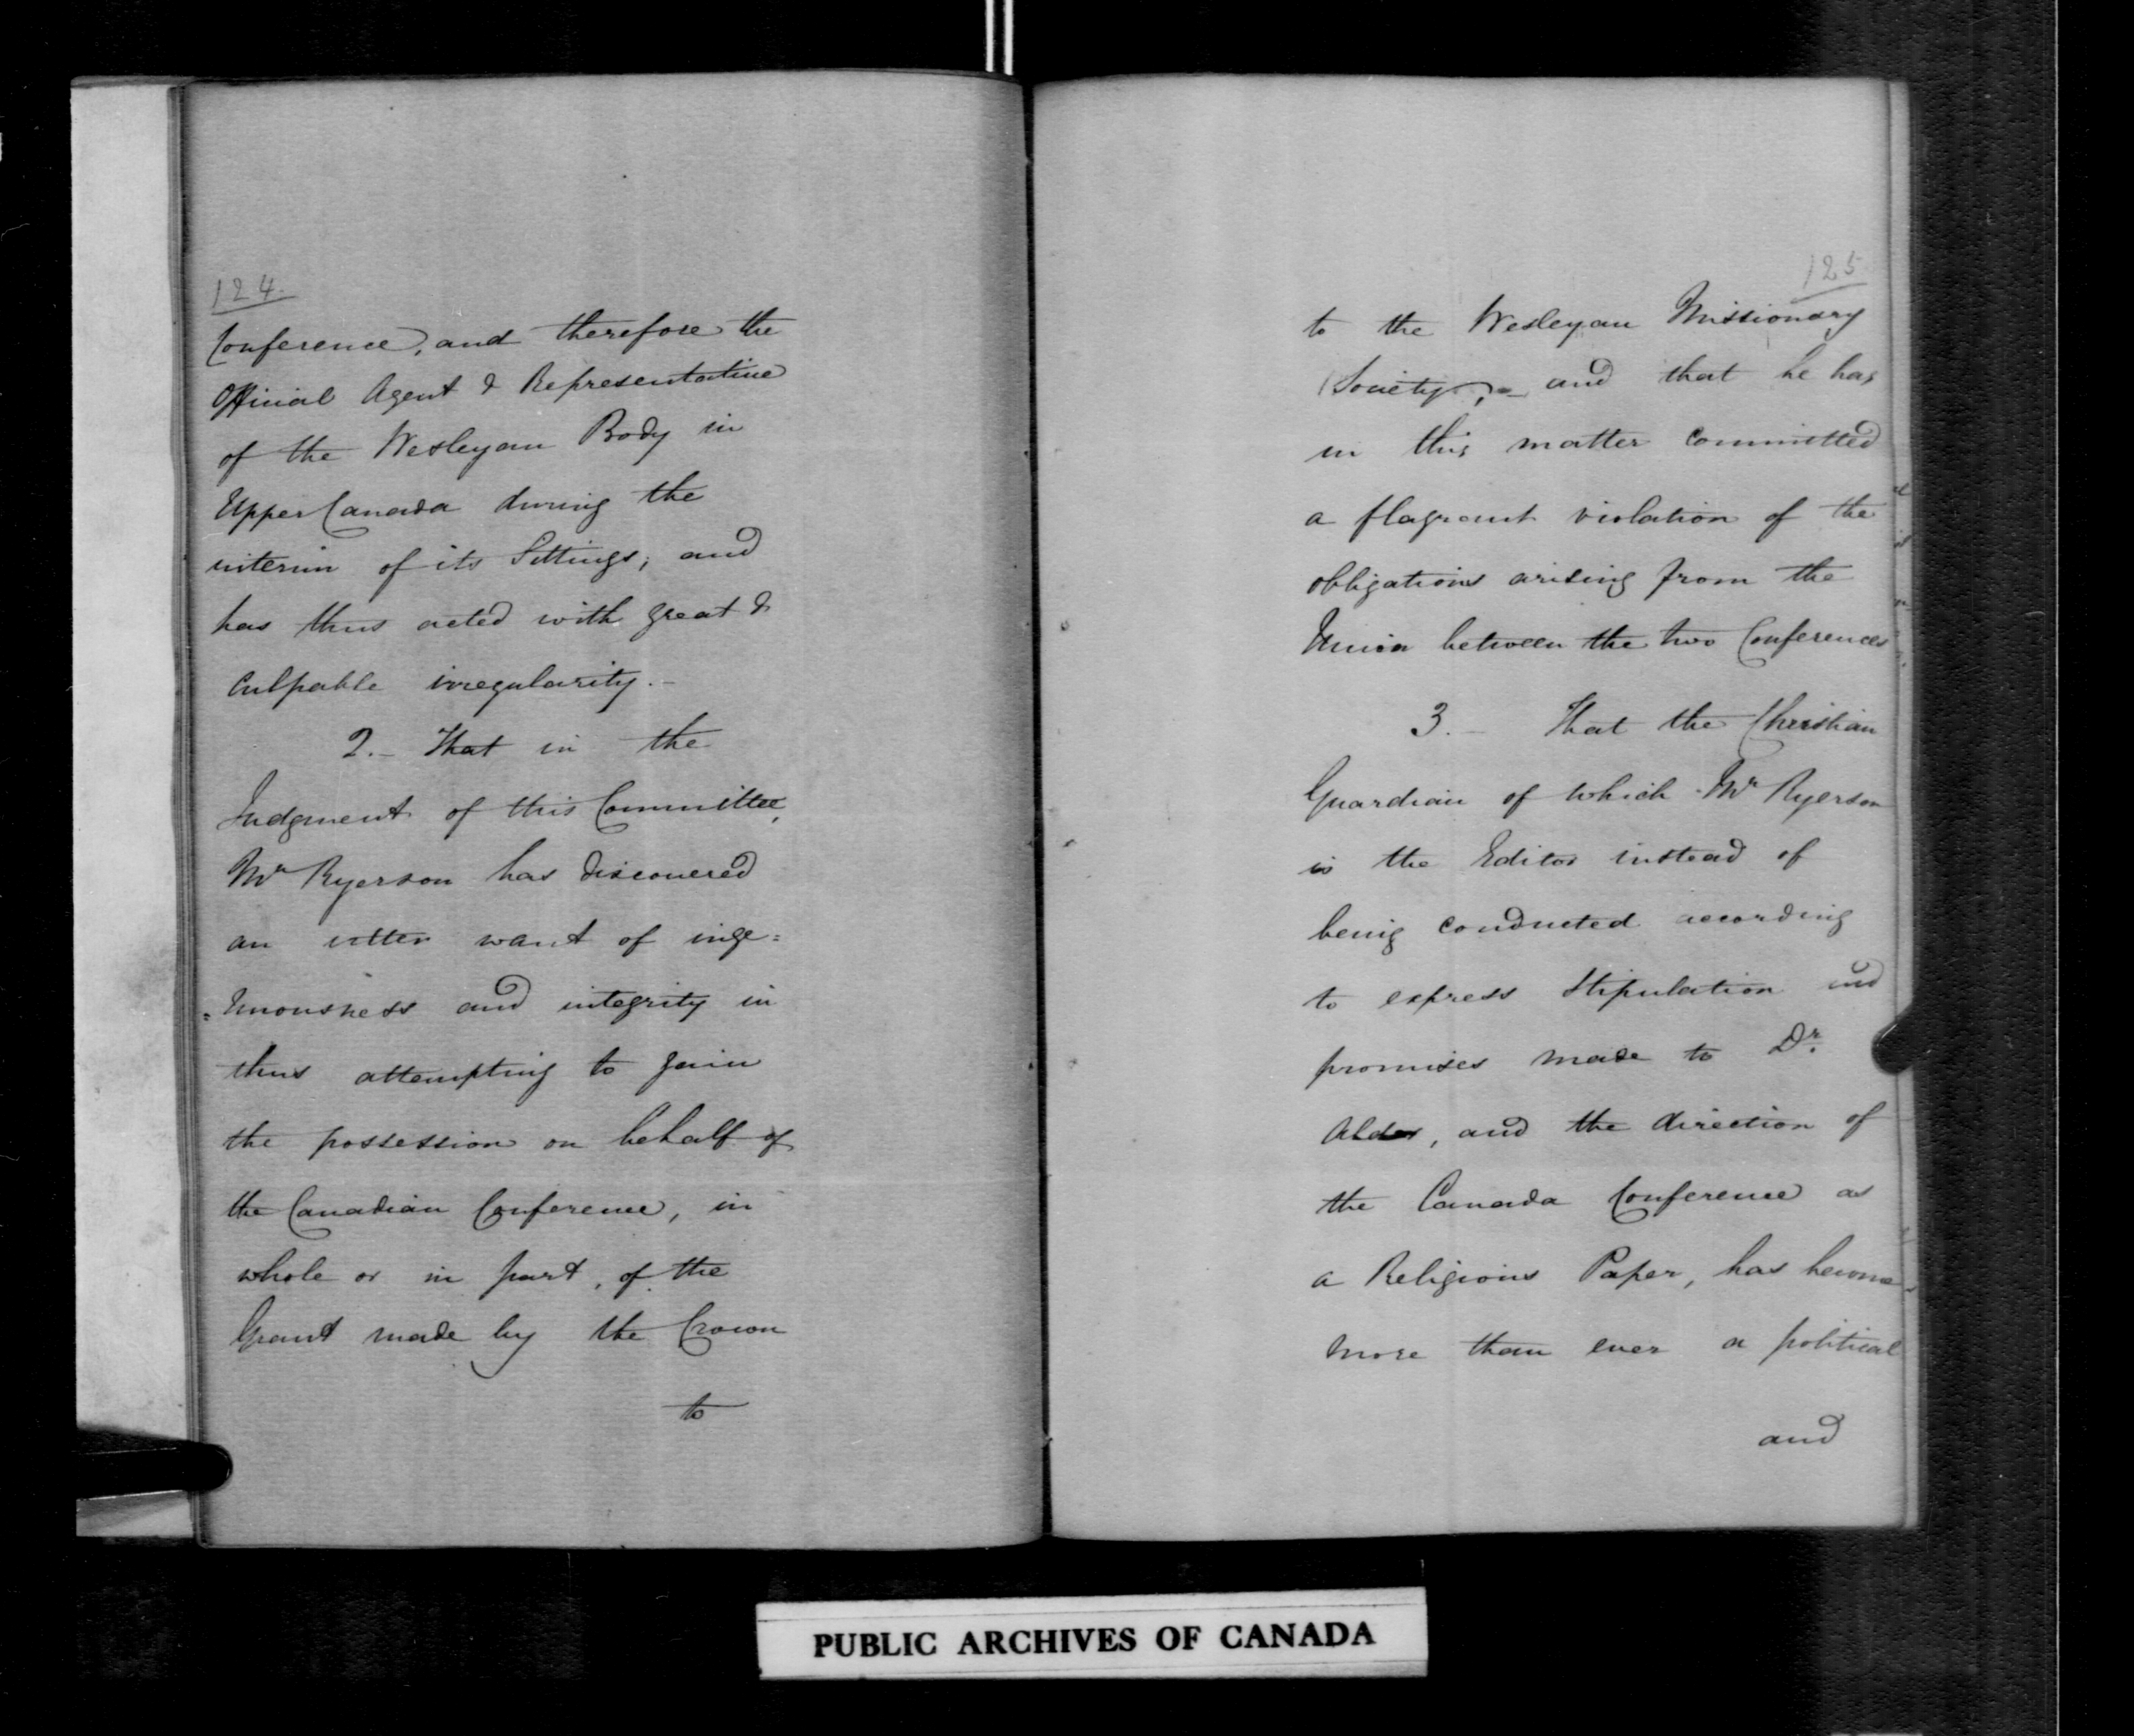 124.
Conference, and therefore the
Official Agent & Representative
of the Wesleyan Body in
Upper Canada during the
interim of its Sittings; and
has thus acted with great &
culpable irregularity.-
2.- That in the
Judgment of this Committee,
Mr Ryerson has discovered
an utter want of inge=
=nuousness and integrity in
thus attempting to gain
the possession on behalf of
the Canadian Conference, in
whole or in part, of the
Grant made by the Crown
to
125
to the Wesleyan Missionary
Society,- and that he has
in this matter committed
a flagrant violation of the
obligations arising from the
Union between the two Conferences
3.- That the Christian
Guardian of which Mr Ryerson
is the Editor instead of
being conducted according
to express stipulation and
promises made to Dr.
Alder, and the direction of
the Canada Conference as
a Religious Paper, has become
more than ever a political
and
PUBLIC ARCHIVES OF CANADA